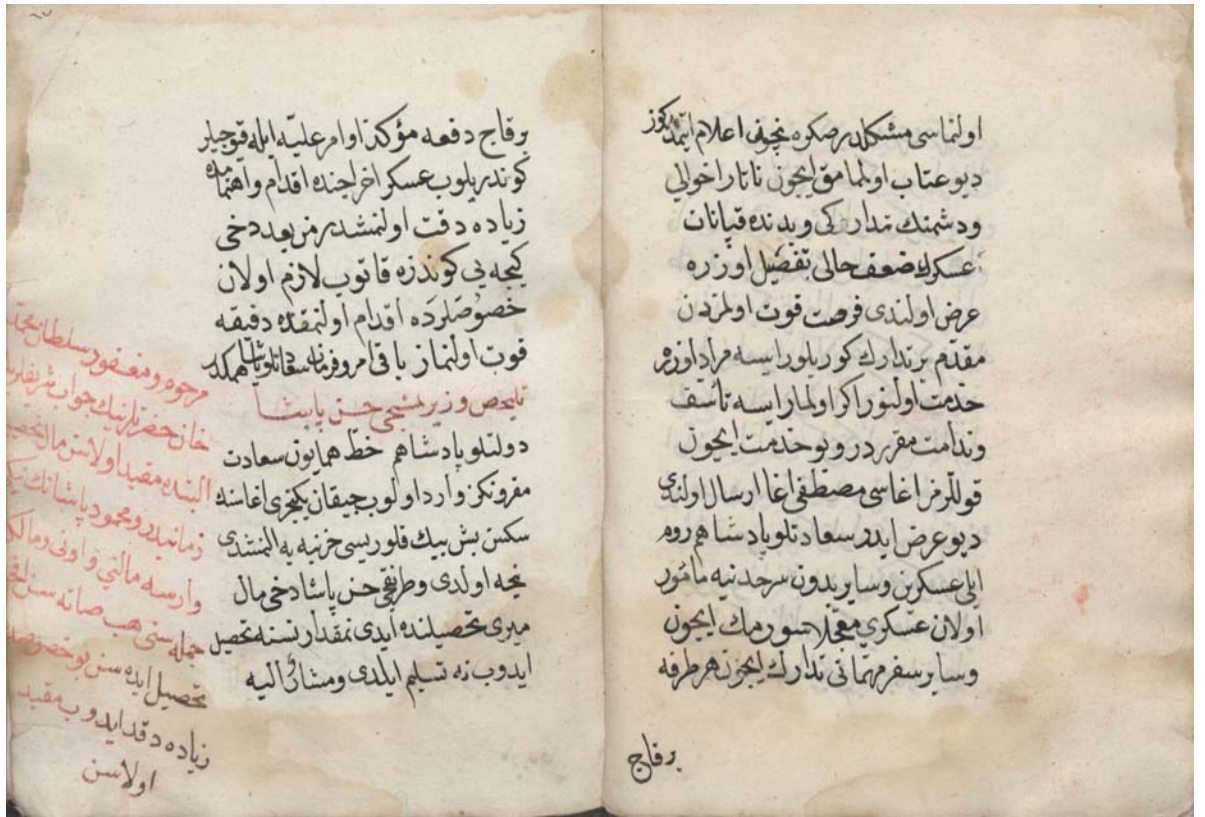 اولنماسی مشکلدر صکره نیچون اعلام ایتمدکوز
دیو عتاب اولنمامق ایچون تاتار احوالی
ودشمنك تدارکی وبدنده قپانان
عسکرك ضعف حالی تفصیل اوزره
عرض اولندی فرصت فوت اولمزدن
مقدم بر تدارك کوریلور ایسه مراد اوزره
خدمت اولنور اکر اولنماز ایسه تأسف
وندامت مقرردر وبو خدمت ایچون
قوللرمز اغاسی مصطفی اغا ارسال اولندی
دیو عرض ایدر سعادتلو پادشاهم روم
ایلی عسکرین وسایر بدون سرحدنیه مأمور
اولان عسکری معجلا سورمك ایچون
وسایر سفر مهماتی تدارك ایچون هر طرفه
برقاج
برقاج دفعه مؤکد اوامر علیه ایله قپوجیلر
کوندریلوب عسکر اخراجنده اقدام واهتمامده
زیاده دقت اولنمشدر من بعد دخی
کیجه یی کوندزه قاتوب لازم اولان
خصوصلرده اقدام اولنمقده دقیقه
فوت اولنماز باقی امر وفرمان سعادتلو پادشاهمکدر
تلخیص وزیر یمشجی حسن پاشا
دولتلو پادشاهم خط همایون سعادت
مقرونکز وارد اولوب چیقان یکیچری اغاسنك
سکسن بش بیك فلوریسی خزنیه یه النمشدی
نجه اولدی وطرنقجی حسن پاشا دخی مال
میری تحصیلنده ایدی نمقدار نسنه تحصیل
ایدوب نه تسلیم ایلدی ومشار الیه
مرحوم ومغفور سلطان محمد
خان حضرتلرینك جواب شریفلریدر
البته مقید اولاسن مال تحصیل
زمانیدر ومحمود پاشانك نیکه
وارسه مالنی واونی ومالك
جمله سنی هپ صاته سن
تحصیل ایده سن بو خصوصده
زیاده دقت ایدوب مقید
اولاسن